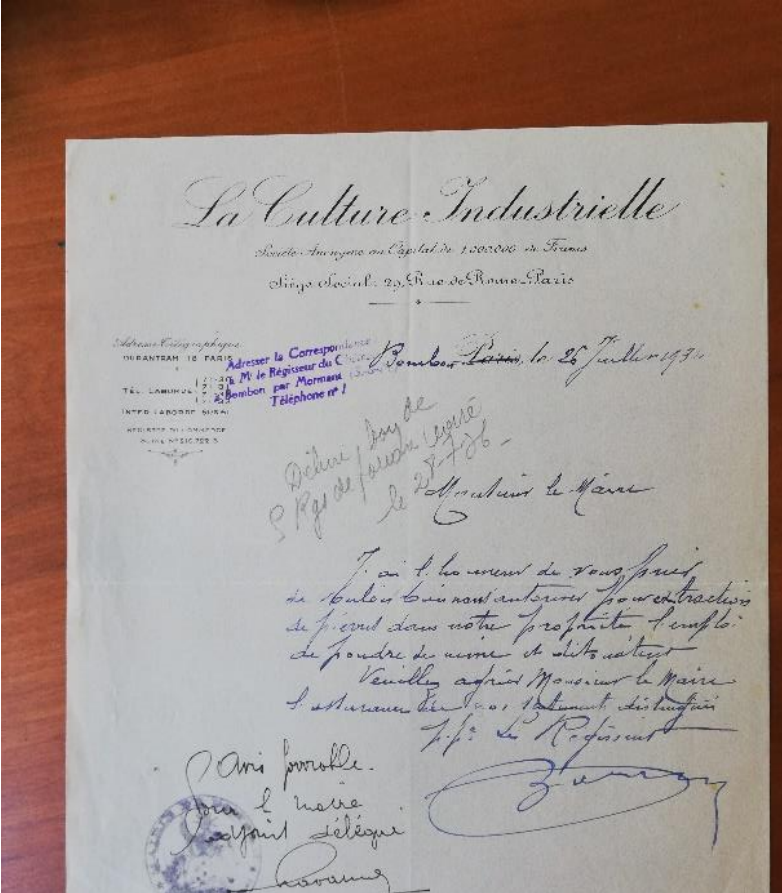 La Culture Industrielle
Société Anonyme au Capital de 1.000.000 de Francs
Siège Social: 29, Rue de Rome - Paris
Adresse Télégraphique
DURANTRAM 18 PARIS
TÉL. LABORDE
INTER LABORDE
REGISTRE DU COMMERCE
Adresser la Correspondance
à Mr le Régisseur du
Bombon par Mormant
Téléphone nº 1
Bombon Paris, le 26 Juillet 193
Délivré bon de
5 Kgs de poudre
le 28-7-36
Monsieur le Maire
J'ai l'honneur de vous prier
de vouloir bien nous autoriser pour extraction
de pierres dans notre propriété l'emploi
de poudre de mine et détonateurs
Veuillez agréer Monsieur le Maire
l'assurance de nos sentiments distingués
p.p. Le Régisseur
Avis favorable
Pour le maire
adjoint délégué